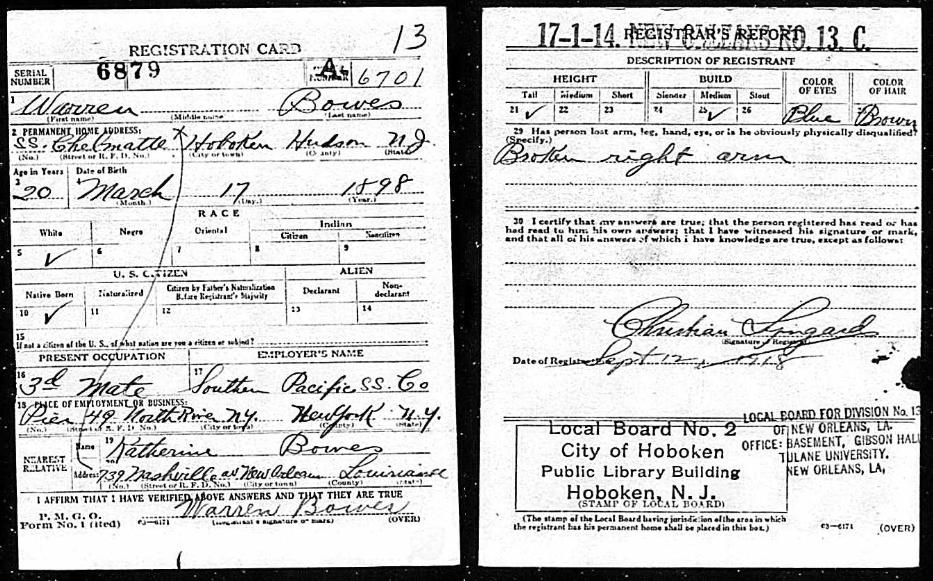 REGISTRATION CARD 13
SERIAL NUMBER 6879 A. 6701
1 Warren Bowes
(First name) (Middle name) (Last name)
2 PERMANENT HOME ADDRESS:
SS. Chalmatte Hoboken Hudson N.J.
(No.) (Street or R. F. D. No.) (City or town) (County) (State)
Age in Years Date of Birth
3 20 4 March 17 1898
(Month.) (Day.) (Year.)
RACE
White Negro Oriental Indian
Citizen Noncitizen
5 ✓ 6 7 8 9
U. S. CITIZEN ALIEN
Native Born Naturalized Citizen by Father's Naturalization Before Registrant's Majority Declarant Non-declarant
10 ✓ 11 12 13 14
15
If not a citizen of the U. S., of what nation are you a citizen or subject?
PRESENT OCCUPATION EMPLOYER'S NAME
16 3d Mate 17 Southern Pacific SS. Co
18 PLACE OF EMPLOYMENT OR BUSINESS:
Pier 49 North River N.Y. New York N.Y.
(No.) (Street or R. F. D. No.) (City or town) (County) (State)
NEAREST RELATIVE Name 19 Katherine Bowes
Address 739 Nashville av New Orleans Louisiana
(No.) (Street or R. F. D. No.) (City or town) (County) (State)
I AFFIRM THAT I HAVE VERIFIED ABOVE ANSWERS AND THAT THEY ARE TRUE
P. M. G. O.
Form No. 1 Warren Bowes
03-6171 (Registrant's signature or mark) (OVER)
17-1-14. NEW ORLEANS NO. 13. C.
REGISTRAR'S REPORT
DESCRIPTION OF REGISTRANT
HEIGHT BUILD COLOR OF EYES COLOR OF HAIR
Tall Medium Short Slender Medium Stout
21 ✓ 22 23 24 25 ✓ 26 Blue Brown
29 Has person lost arm, leg, hand, eye, or is he obviously physically disqualified?
(Specify.)
Broken right arm
30 I certify that my answers are true; that the person registered has read or has
had read to him his own answers; that I have witnessed his signature or mark,
and that all of his answers of which I have knowledge are true, except as follows:
Christian
(Signature of Registrar)
Date of Sept 12, 1918
Local Board No. 2
City of Hoboken
Public Library Building
Hoboken, N. J.
(STAMP OF LOCAL BOARD)
LOCAL BOARD FOR DIVISION No. 13
OF NEW ORLEANS, LA.
OFFICE: BASEMENT, GIBSON HALL
TULANE UNIVERSITY.
NEW ORLEANS, LA,
(The stamp of the Local Board having jurisdiction of the area in which
the registrant has his permanent home shall be placed in this box.)
03-6171 (OVER)